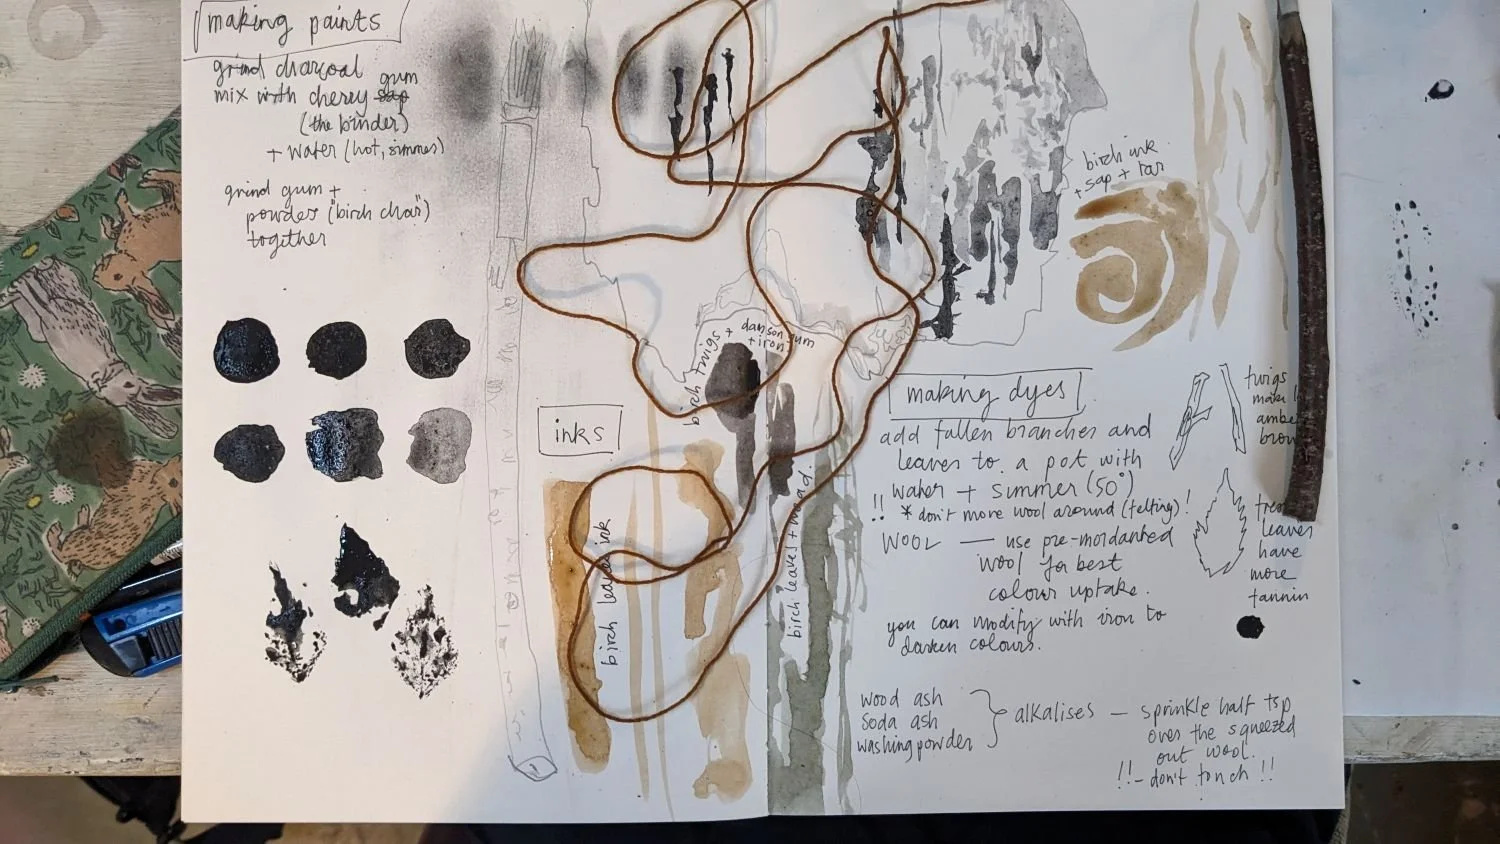 making paints
grind charcoal
mix with cherry gum sap
(the binder)
+ water (hot, simmer)
grind gum +
powder "birch char"
together
birch ink
+ sap + tar
birch twigs + damson gum
+ iron
inks
birch leaves ink
birch leaves + woad.
making dyes
add fallen branches and
leaves to a pot with
water + simmer (50°)
!! * don't move wool around (felting)!
WOOL — use pre-mordanted
wool for best
colour uptake.
you can modify with iron to
darken colours.
twigs
make
amber
brown
leaves
have
more
tannin
wood ash
soda ash
washing powder
alkalises — sprinkle half tsp
over the squeezed
out wool.
!! - don't touch !!